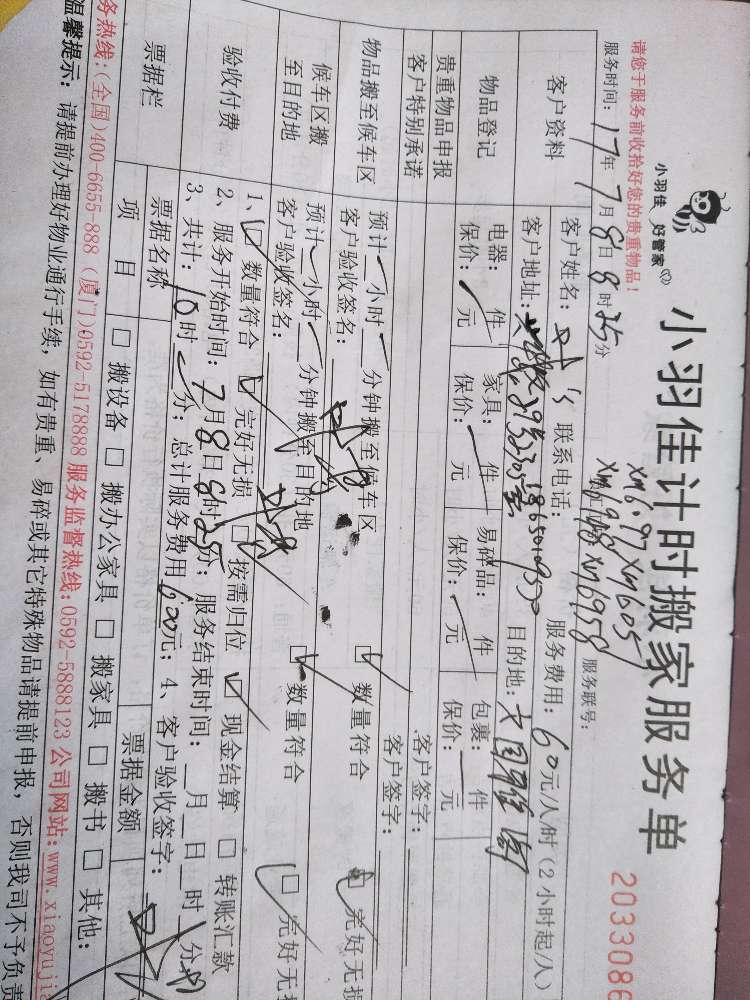 小羽佳 好管家
小羽佳计时搬家服务单
2033086
请您于服务前收拾好您的贵重物品！
服务时间：17年7月8日8时25分
服务联号：
客户资料
客户姓名：叶's 联系电话： 服务费用：60元/人/时（2小时起/人）
客户地址： 目的地：
物品登记
电器： 件 家具： 件 易碎品： 件 包裹： 件
保价： 元 保价： 元 保价： 元 保价： 元
贵重物品申报
客户特别承诺
客户签字：
客户签字：
物品搬至候车区
预计 小时 分钟搬至候车区
客户验收签名：
数量符合 完好无损
候车区搬
至目的地
预计 小时 分钟搬至目的地
客户验收签名：
数量符合 完好无损
验收付费
1、 数量符合 完好无损 按需归位 现金结算 转账汇款
2、服务开始时间：7月8日8时25分；服务结束时间： 月 日 时 分
3、共计：10时 分；总计服务费用600元；4、客户验收签字：
票据栏
票据名称 票据金额
项 目
搬设备 搬办公家具 搬家具 搬书 其他：
务热线：（全国）400-6655-888（厦门）0592-5178888 服务监督热线：0592-5888123 公司网站：www.xiaoyujia
温馨提示：请提前办理好物业通行手续，如有贵重、易碎或其它特殊物品请提前申报，否则我司不予负责